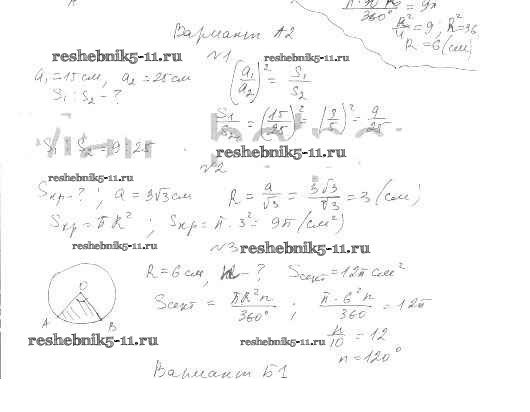 π·90 R² / 360° = 9π
R²/4 = 9 ; R² = 36
R = 6 (см)
Вариант А2
reshebnik5-11.ru
№1
a₁ = 15 см, a₂ = 25 см
(a₁/a₂)² = S₁/S₂
S₁ : S₂ - ?
S₁/S₂ = (15/25)² = (3/5)² = 9/25
S₁ : S₂ = 9 : 25
reshebnik5-11.ru
№2
reshebnik5-11.ru
Sкр - ? ; a = 3√3 см
R = a/√3 = 3√3/√3 = 3 (см)
Sкр = πR² ; Sкр = π·3² = 9π (см²)
reshebnik5-11.ru
№3
reshebnik5-11.ru
R = 6 см, n - ? Sсект = 12π см²
O
A
B
Sсект = πR²n / 360° ; π·6²n / 360 = 12π
n/10 = 12
reshebnik5-11.ru
reshebnik5-11.ru
n = 120°
Вариант Б1